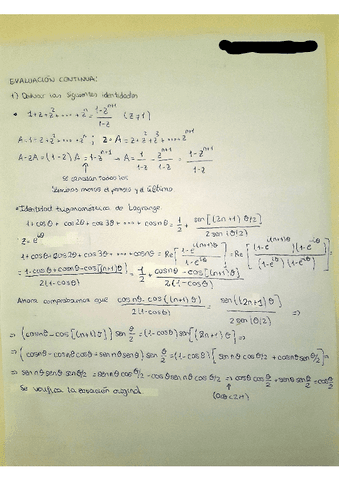 EVALUACIÓN CONTINUA:
1) Deducir las siguientes identidades
• 1+z+z²+····+zⁿ = (1-zⁿ⁺¹)/(1-z) (z≠1)
A=1+z+z²+····+zⁿ ; z·A=z+z²+z³+····+zⁿ⁺¹
A-zA=(1-z)A=1-zⁿ⁺¹→A= 1/(1-z) - zⁿ⁺¹/(1-z) = (1-zⁿ⁺¹)/(1-z)
se cancelan todos los
términos menos el primero y el último
• Identidad trigonométrica de Lagrange
1+cosθ+cos2θ+cos3θ+····+cosnθ = 1/2 + sen[(2n+1)θ/2]/(2sen(θ/2))
z=e^(iθ)
1+cosθ+cos2θ+cos3θ+····+cosnθ = Re[(1-e^(i(n+1)θ))/(1-e^(iθ))] = Re[
= (1-cosθ+cosnθ-cos[(n+1)θ])/(2(1-cosθ)) = 1/2 + (cosnθ-cos[(n+1)θ])/(2(1-cosθ))
Ahora comprobamos que (cosnθ-cos[(n+1)θ])/(2(1-cosθ)) = sen[(2n+1)θ/2]/(2sen(θ/2)) ⇒
⇒ (cosnθ-cos[(n+1)θ]) sen θ/2 = (1-cosθ) sen[(2n+1)θ/2] ⇒
⇒ (cosnθ-cosnθcosθ+sennθsenθ) sen θ/2 = (1-cosθ)[sennθcosθ/2+cosnθsenθ/2] ⇒
⇒ sennθsenθsenθ/2 = sennθcosθ/2-cosθsennθcosθ/2 ⇒ cosθcos θ/2+senθsen θ/2=cos θ/2
Se verifica la ecuación original
(0<θ<2π)